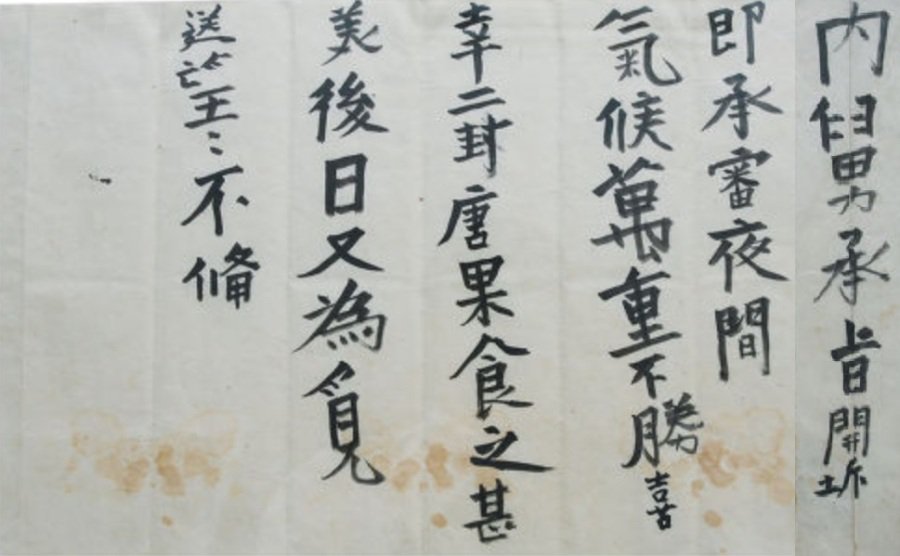 内舅承旨開坼
即承審夜間
氣候萬重不勝喜
幸二封唐果食之甚
美後日又為覓
送望〻不俻